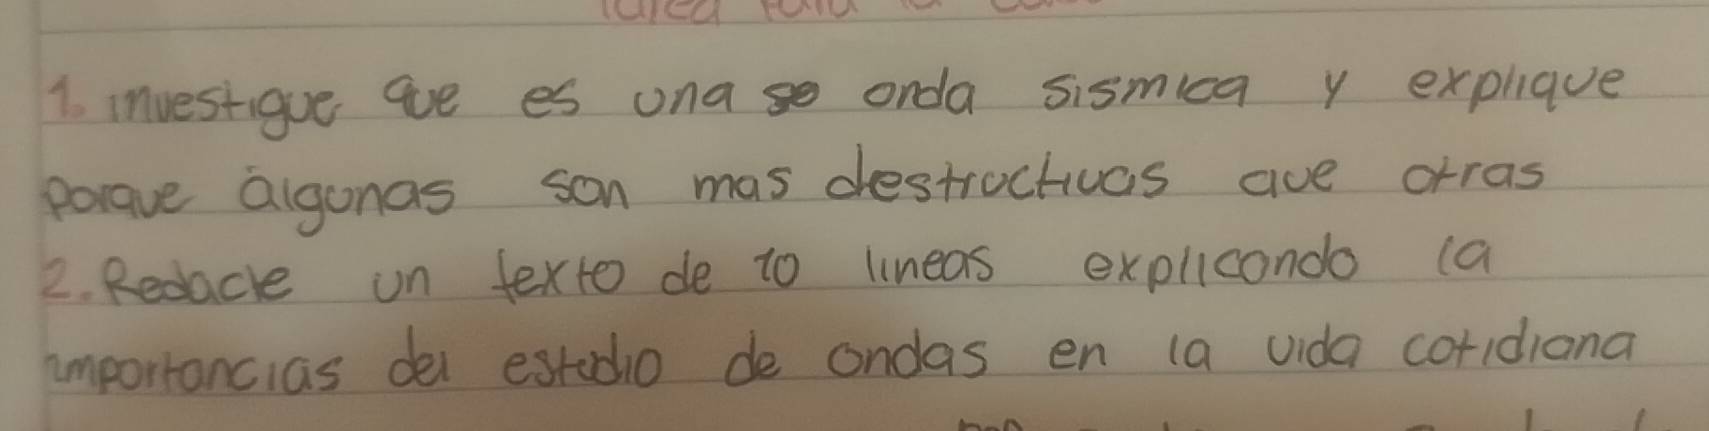 1. investigue que es una se onda sismica y explique
porque algunas son mas destructivas que otras
2. Redacte un texto de 10 lineas explicando la
importancias del estudio de ondas en la vida cotidiana